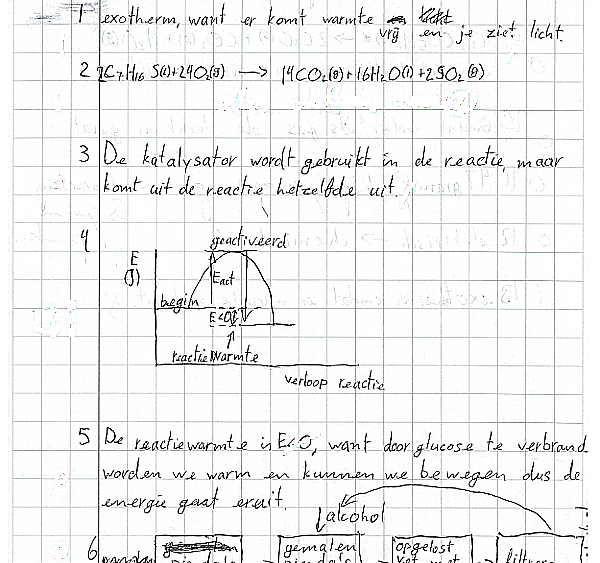 1 exotherm, want er komt warmte
vrij en je ziet licht.
2 2C7H16S(l)+24O2(g) → 14CO2(g)+16H2O(l)+2SO2(g)
3 De katalysator wordt gebruikt in de reactie, maar
komt uit de reactie hetzelfde uit.
4
geactiveerd
E
(J)
Eact
begin
E<0
reactiewarmte
verloop reactie
5 De reactiewarmte is E<0, want door glucose te verbrand
worden we warm en kunnen we bewegen dus de
energie gaat eruit.
alcohol
6
gemalen
opgelost